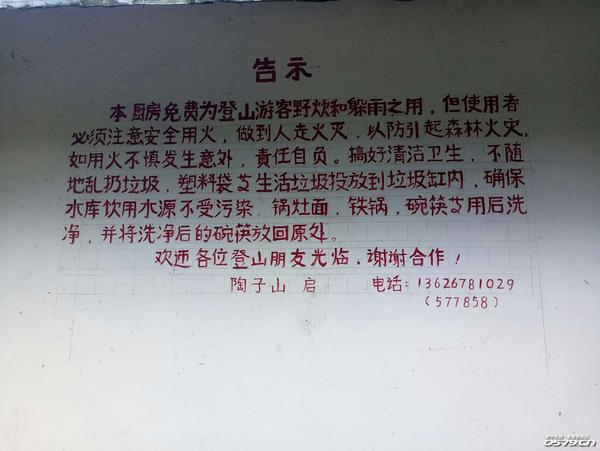 告示
本厨房免费为登山游客野炊和躲雨之用，但使用者
必须注意安全用火，做到人走火灭，以防引起森林火灾，
如用火不慎发生意外，责任自负。搞好清洁卫生，不随
地乱扔垃圾，塑料袋及生活垃圾投放到垃圾缸内，确保
水库饮用水源不受污染，锅灶面，铁锅，碗筷及用后洗
净，并将洗净后的碗筷放回原处。
欢迎各位登山朋友光临，谢谢合作！
陶子山 启 电话：13626781029
（577858）
0579.cn